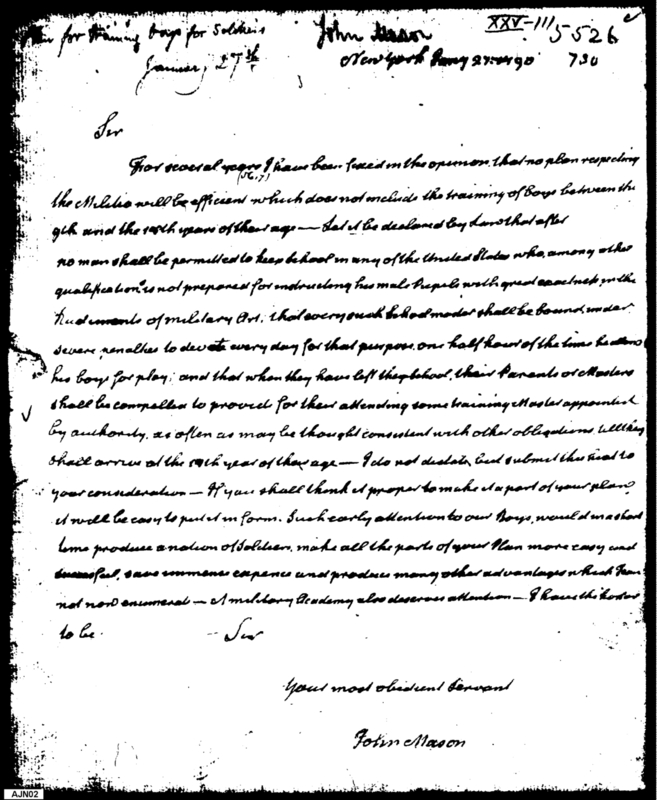 for training boys for Soldiers
January 27th
John Mason
XXV-III
5526
New York Jany 27. 1790
730
Sir
For several years I have been fixed in the opinion, that no plan respecting
the Militia will be efficient which does not include the training of Boys between the
9th and the 19th years of their age — Let it be declared by Law that after
no man shall be permitted to keep School in any of the United States who, among other
qualifications is not prepared for instructing his male Pupils with great exactness in the
Rudiments of military Art; that every such School master shall be bound, under
severe penalties to devote every day for that purpose, one half hour of the time he allows
his boys for play; and that when they have left the School, their Parents or Masters
shall be compelled to provide for their attending some training Master appointed
by authority, as often as may be thought consistent with other obligations, till they
shall arrive at the 19th year of their age — I do not dictate, but submit this to
your consideration — If you shall think it proper to make it a part of your plan,
it will be easy to put it in form. Such early attention to our Boys, would in a short
time produce a nation of Soldiers, make all the parts of your Plan more easy and
successful, save immense expence and produce many other advantages which I can
not now enumerate — A military Academy also deserves attention — I have the honor
to be. — Sir
Your most obedient Servant
John Mason
AJN02